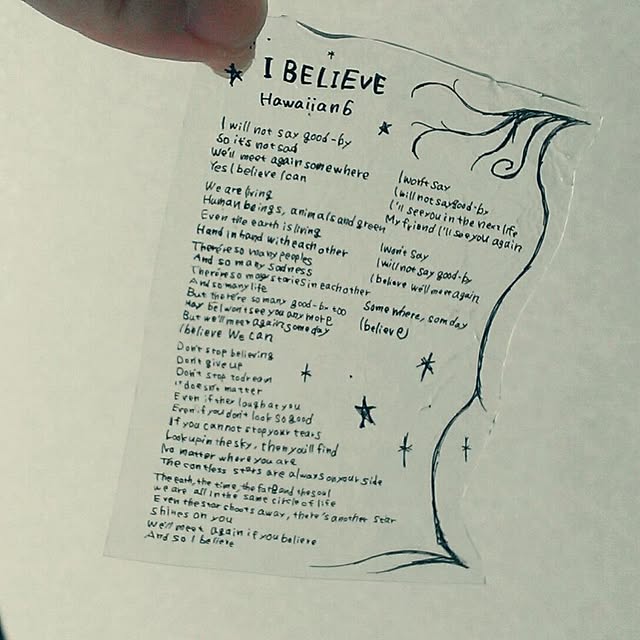 I BELIEVE
Hawaiian6
I will not say good-by
So it's not sad
We'll meet again somewhere
Yes I believe I can
We are living
Human beings, animals and green
Even the earth is living
Hand in hand with each other
There're so many peoples
And so many sadness
There're so many stories in each other
And so many life
But there're so many good-by too
May be I won't see you any more
But we'll meet again some day
I believe We can
Don't stop believing
Don't give up
Don't stop to dream
It doesn't matter
Even if they laugh at you
Even if you don't look so good
If you cannot stop your tears
Look up in the sky, then you'll find
No matter where you are
The contless stars are always on your side
The earth, the time, the fate and the soul
we are all in the same circle of life
Even the star shoots away, there's another star
shines on you
We'll meet again if you believe
And so I believe
I won't say
I will not say good-by
I'll see you in the next life
My friend I'll see you again
I won't say
I will not say good-by
I believe we'll meet again
Some where, som day
I believe